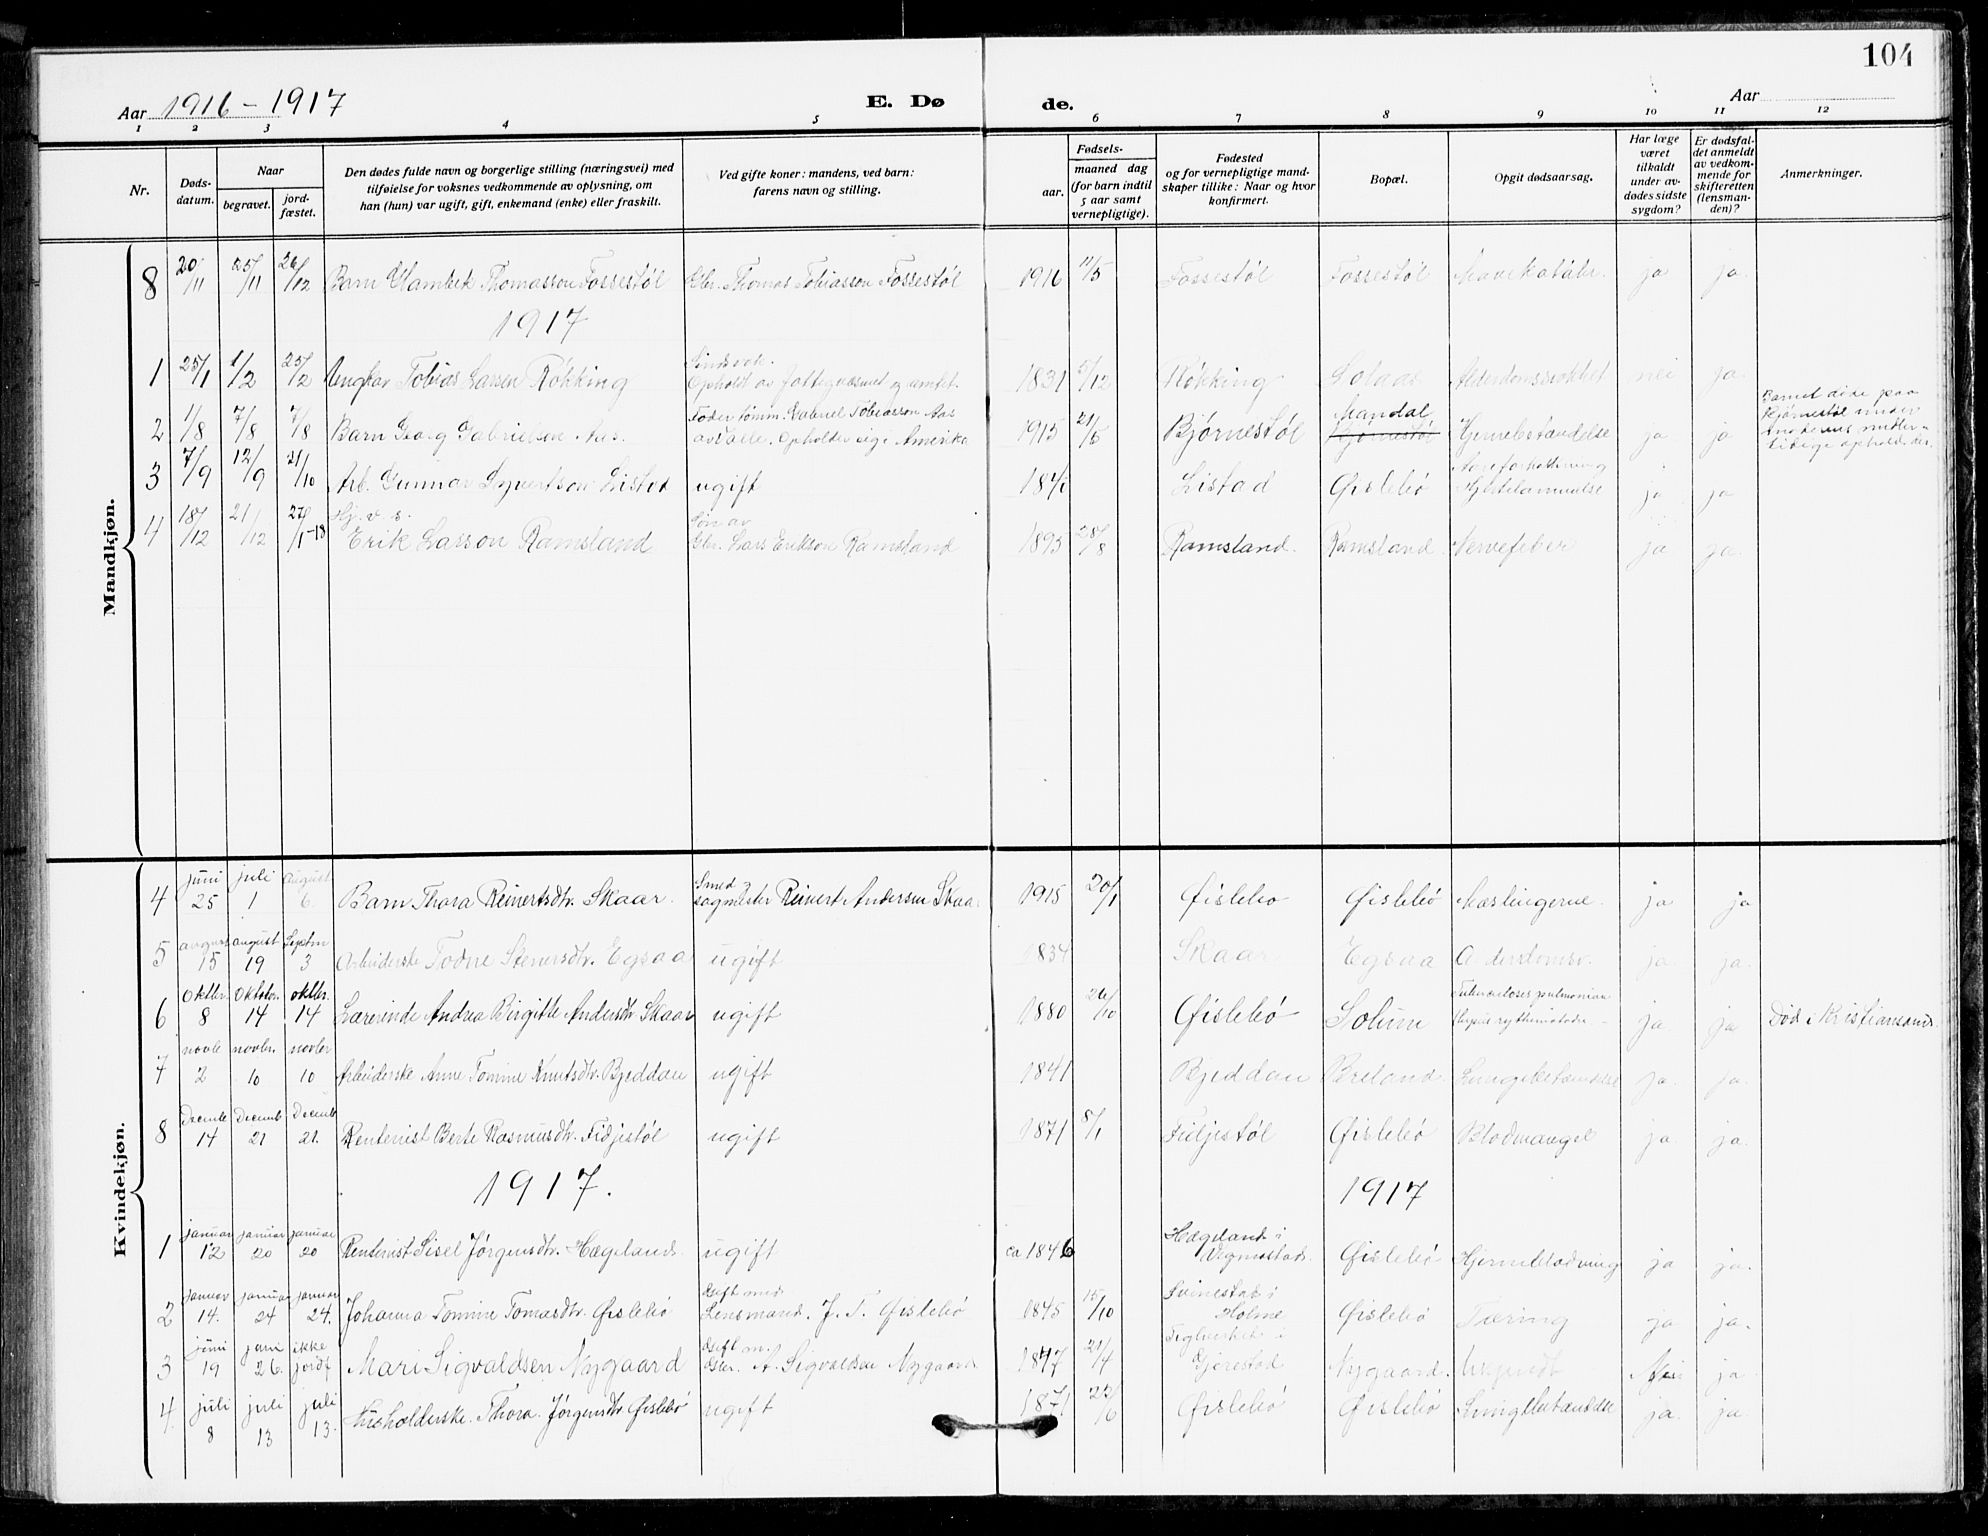 104
Aar 1916 - 1917
E. Døde.
Aar
1 2 3 4 5 6 7 8 9 10 11 12
Nr.
Døds-datum.
Naar
begravet.
jord-fæstet.
Den dødes fulde navn og borgerlige stilling (næringsvei) med tilføielse for voksnes vedkommende av oplysning, om han (hun) var ugift, gift, enkemand (enke) eller fraskilt.
Ved gifte koner: mandens, ved barn: farens navn og stilling.
Fødsels-
aar.
maaned dag (for barn indtil 5 aar samt vernepligtige).
Fødested og for vernepligtige mandskaper tillike: Naar og hvor konfirmert.
Bopæl.
Opgit dødsaarsag.
Har læge været tilkaldt under avdødes sidste sygdom?
Er dødsfaldet anmeldt av vedkommende for skifteretten (lensmanden)?
Anmerkninger.
Mandkjøn.
8 20/11 25/11 26/12 Barn Thomasson Fossestøl Gbr. Thomas Tobiasson Fossestøl 1916 11/5 Fossestøl Fossestøl ja ja.
1917
1 25/1 1/2 25/2 Ungkar Tobias Larsen Røkking Sindssvak. Ophold av fattigvæsenet og amtet. 1831 5/12 Røkking Solaas Alderdomssvakhet nei ja.
2 1/8 7/8 7/8 Barn Georg Gabrielson Aas. Fader tømm. Gabriel Tobiasson Aas Opholder sig i Amerika 1915 21/5 Bjørnestøl Mandal Bjørnestøl Hjernebetændelse ja ja Barnet døde paa Bjørnestøl under moderens midlertidige ophold der.
3 7/9 12/9 21/10 Arb. Gunnar Syvertson Listad ugift 184 Listad Øislebø Aareforkalkning ja ja
4 18/12 21/12 27/1-18 Erik Larsson Ramsland Søn av Gbr. Lars Erikson Ramsland 1893 28/8 Ramsland. Ramsland. Nervefeber ja ja.
Kvindekjøn.
4 juni 25 juli 1 august 6. Barn Thora Reinertsdtr. Skaar. Smed sagmester Reinert Andersen Skaar 1915 20/1 Øislebø Øislebø Mæslingerne. ja ja
5 august 15 august 19 Septm 3 Arbeiderske Todne Stenersdtr. Egsaa ugift 1834 Skaar Egsaa Alderdomssv. ja. ja.
6 oktbr. 8 Oktober 14 oktbr. 14 Lærerinde Andrea Birgitte Andersdtr Skaar ugift 1880 26/10 Øislebø Solum ja. ja Død i Kristiansand.
7 novbr 2 novbr. 10 novber 10 Arbeiderske Anne Tomine Knutsdtr. Bjeddau ugift 1841 Bjeddau Breland. Lungebetændelse ja. ja.
8 Decembr 14 Decemb 21 Decemb 21. Rentenist Berte Rasmusdtr. Fidjestøl ugift 1871 8/1 Fidjestøl Øislebø Blodmangel ja. ja.
1917. 1917
1 januar 12 januar 20 januar 20 Rentenist Sisel Jørgensdtr. Hægeland. ugift ca 1846 Hægeland i Vegmostad. Øislebø Hjerneblødning ja ja.
2 januar 14. januar 24 januar 24. Johanna Tomine Tomasdtr. Øislebø Gift med Lensmand. J. T. Øislebø 1845 15/10 Holme Øislebø Tæring ja ja.
3 juni 19 juni 26. ikke jordf Mari Sigvaldsen Nygaard Gift m. Gbr. A. Sigvaldsen Nygaard 1847 21/4 Teglverket i Gjerestad Nygaard. Ukjendt Nei ja.
4. juli 8 juli 13 juli 13. Husholderske. Thora. Jørgensdtr. Øislebø ugift 1871 22/6 Øislebø Øislebø Lungebetændelse ja. ja.